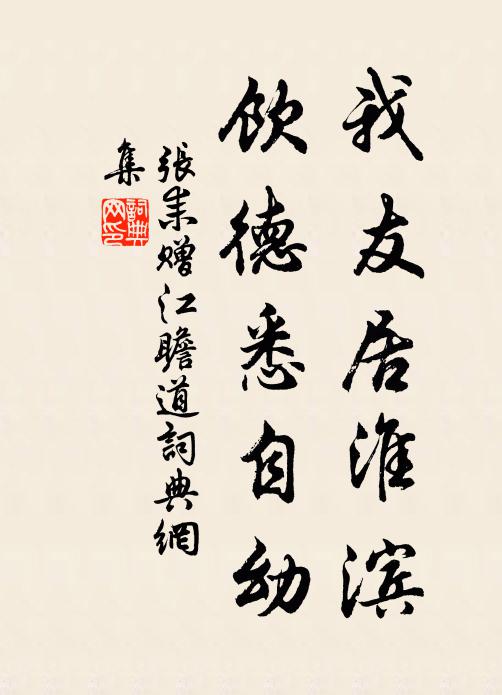 我友居淮滨
飲德悉自幼
張耒贈江瞻道詞典網
集
詞典
网印